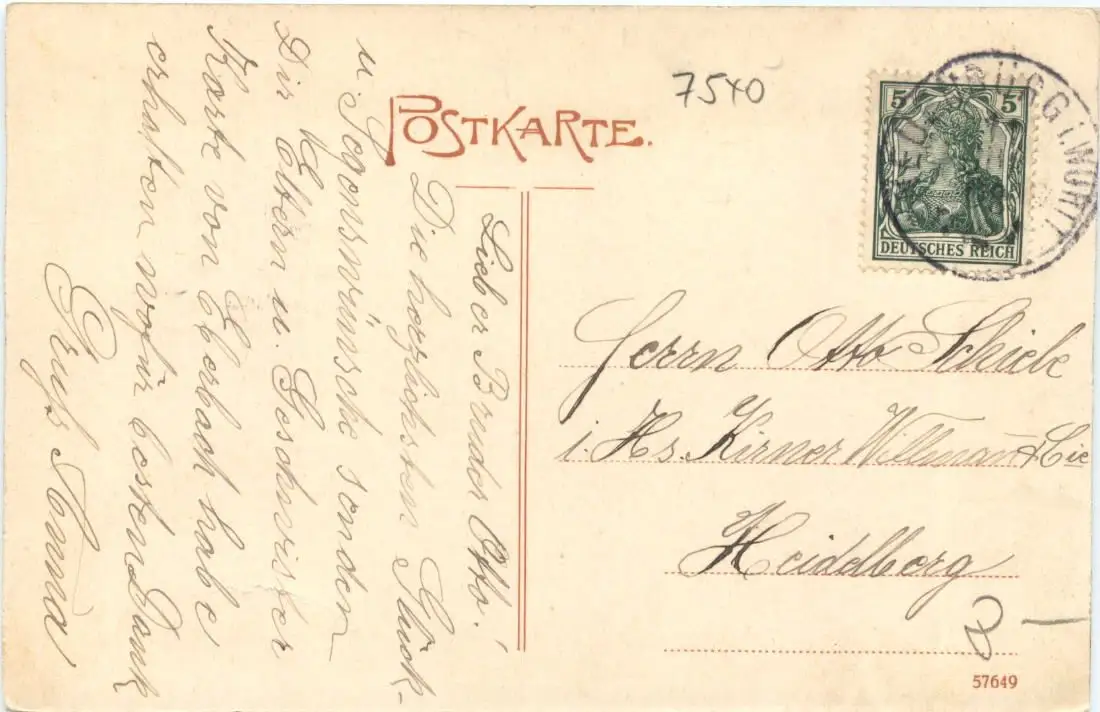 7540
POSTKARTE.
5 5
DEUTSCHES REICH
NEUENBÜRG (WÜRTT
Lieber Bruder Otto!
Die herzlichsten Glück-
u. Segenswünsche senden
Dir Eltern u. Geschwister
Karte von Eberbach habe
erhalten wofür besten Dank
Gruß Anna
Herrn Otto Schiele
i. Hs. Kirner Willmann & Cie
Heidelberg
57649